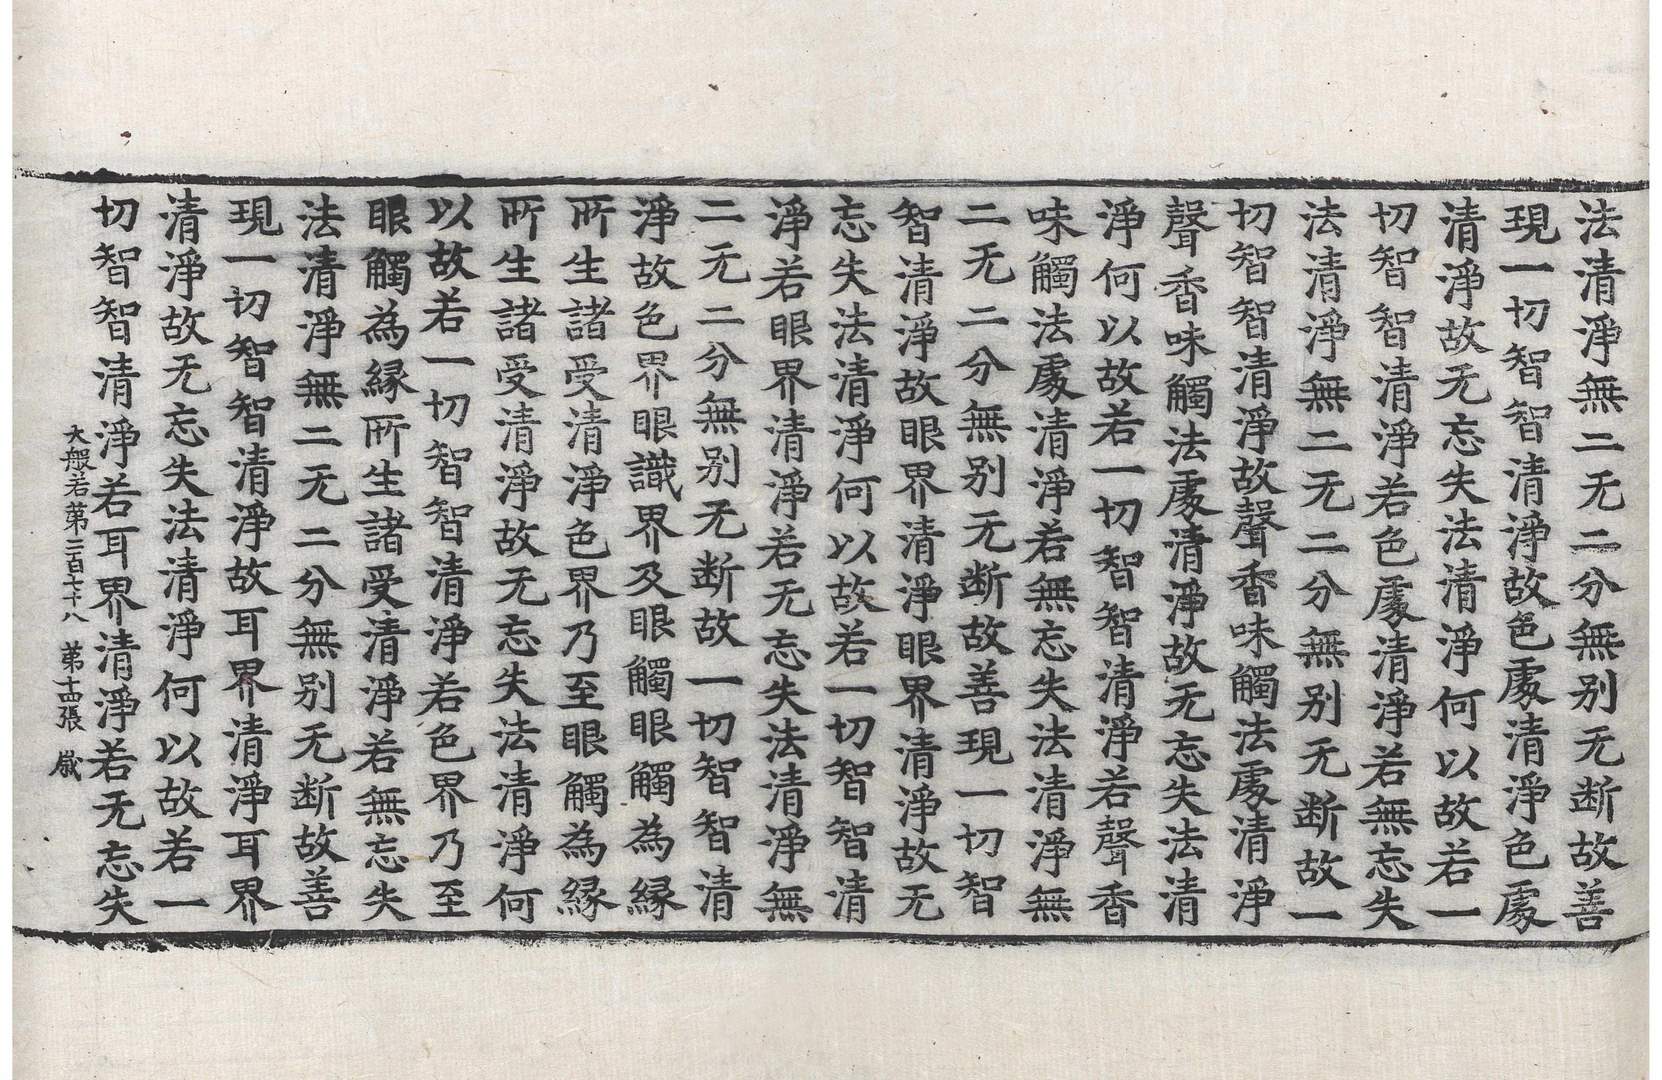 法清淨無二无二分無别无断故善
現一切智智清淨故色處清淨色處
清淨故无忘失法清淨何以故若一
切智智清淨若色處清淨若無忘失
法清淨無二无二分無别无断故一
切智智清淨故聲香味觸法處清淨
聲香味觸法處清淨故无忘失法清
淨何以故若一切智智清淨若聲香
味觸法處清淨若無忘失法清淨無
二无二分無别无断故善現一切智
智清淨故眼界清淨眼界清淨故无
忘失法清淨何以故若一切智智清
淨若眼界清淨若无忘失法清淨無
二无二分無别无断故一切智智清
淨故色界眼識界及眼觸眼觸為縁
所生諸受清淨色界乃至眼觸為縁
所生諸受清淨故无忘失法清淨何
以故若一切智智清淨若色界乃至
眼觸為縁所生諸受清淨若無忘失
法清淨無二无二分無别无断故善
現一切智智清淨故耳界清淨耳界
清淨故无忘失法清淨何以故若一
切智智清淨若耳界清淨若无忘失
大般若第二百七十八 第十四張 歲